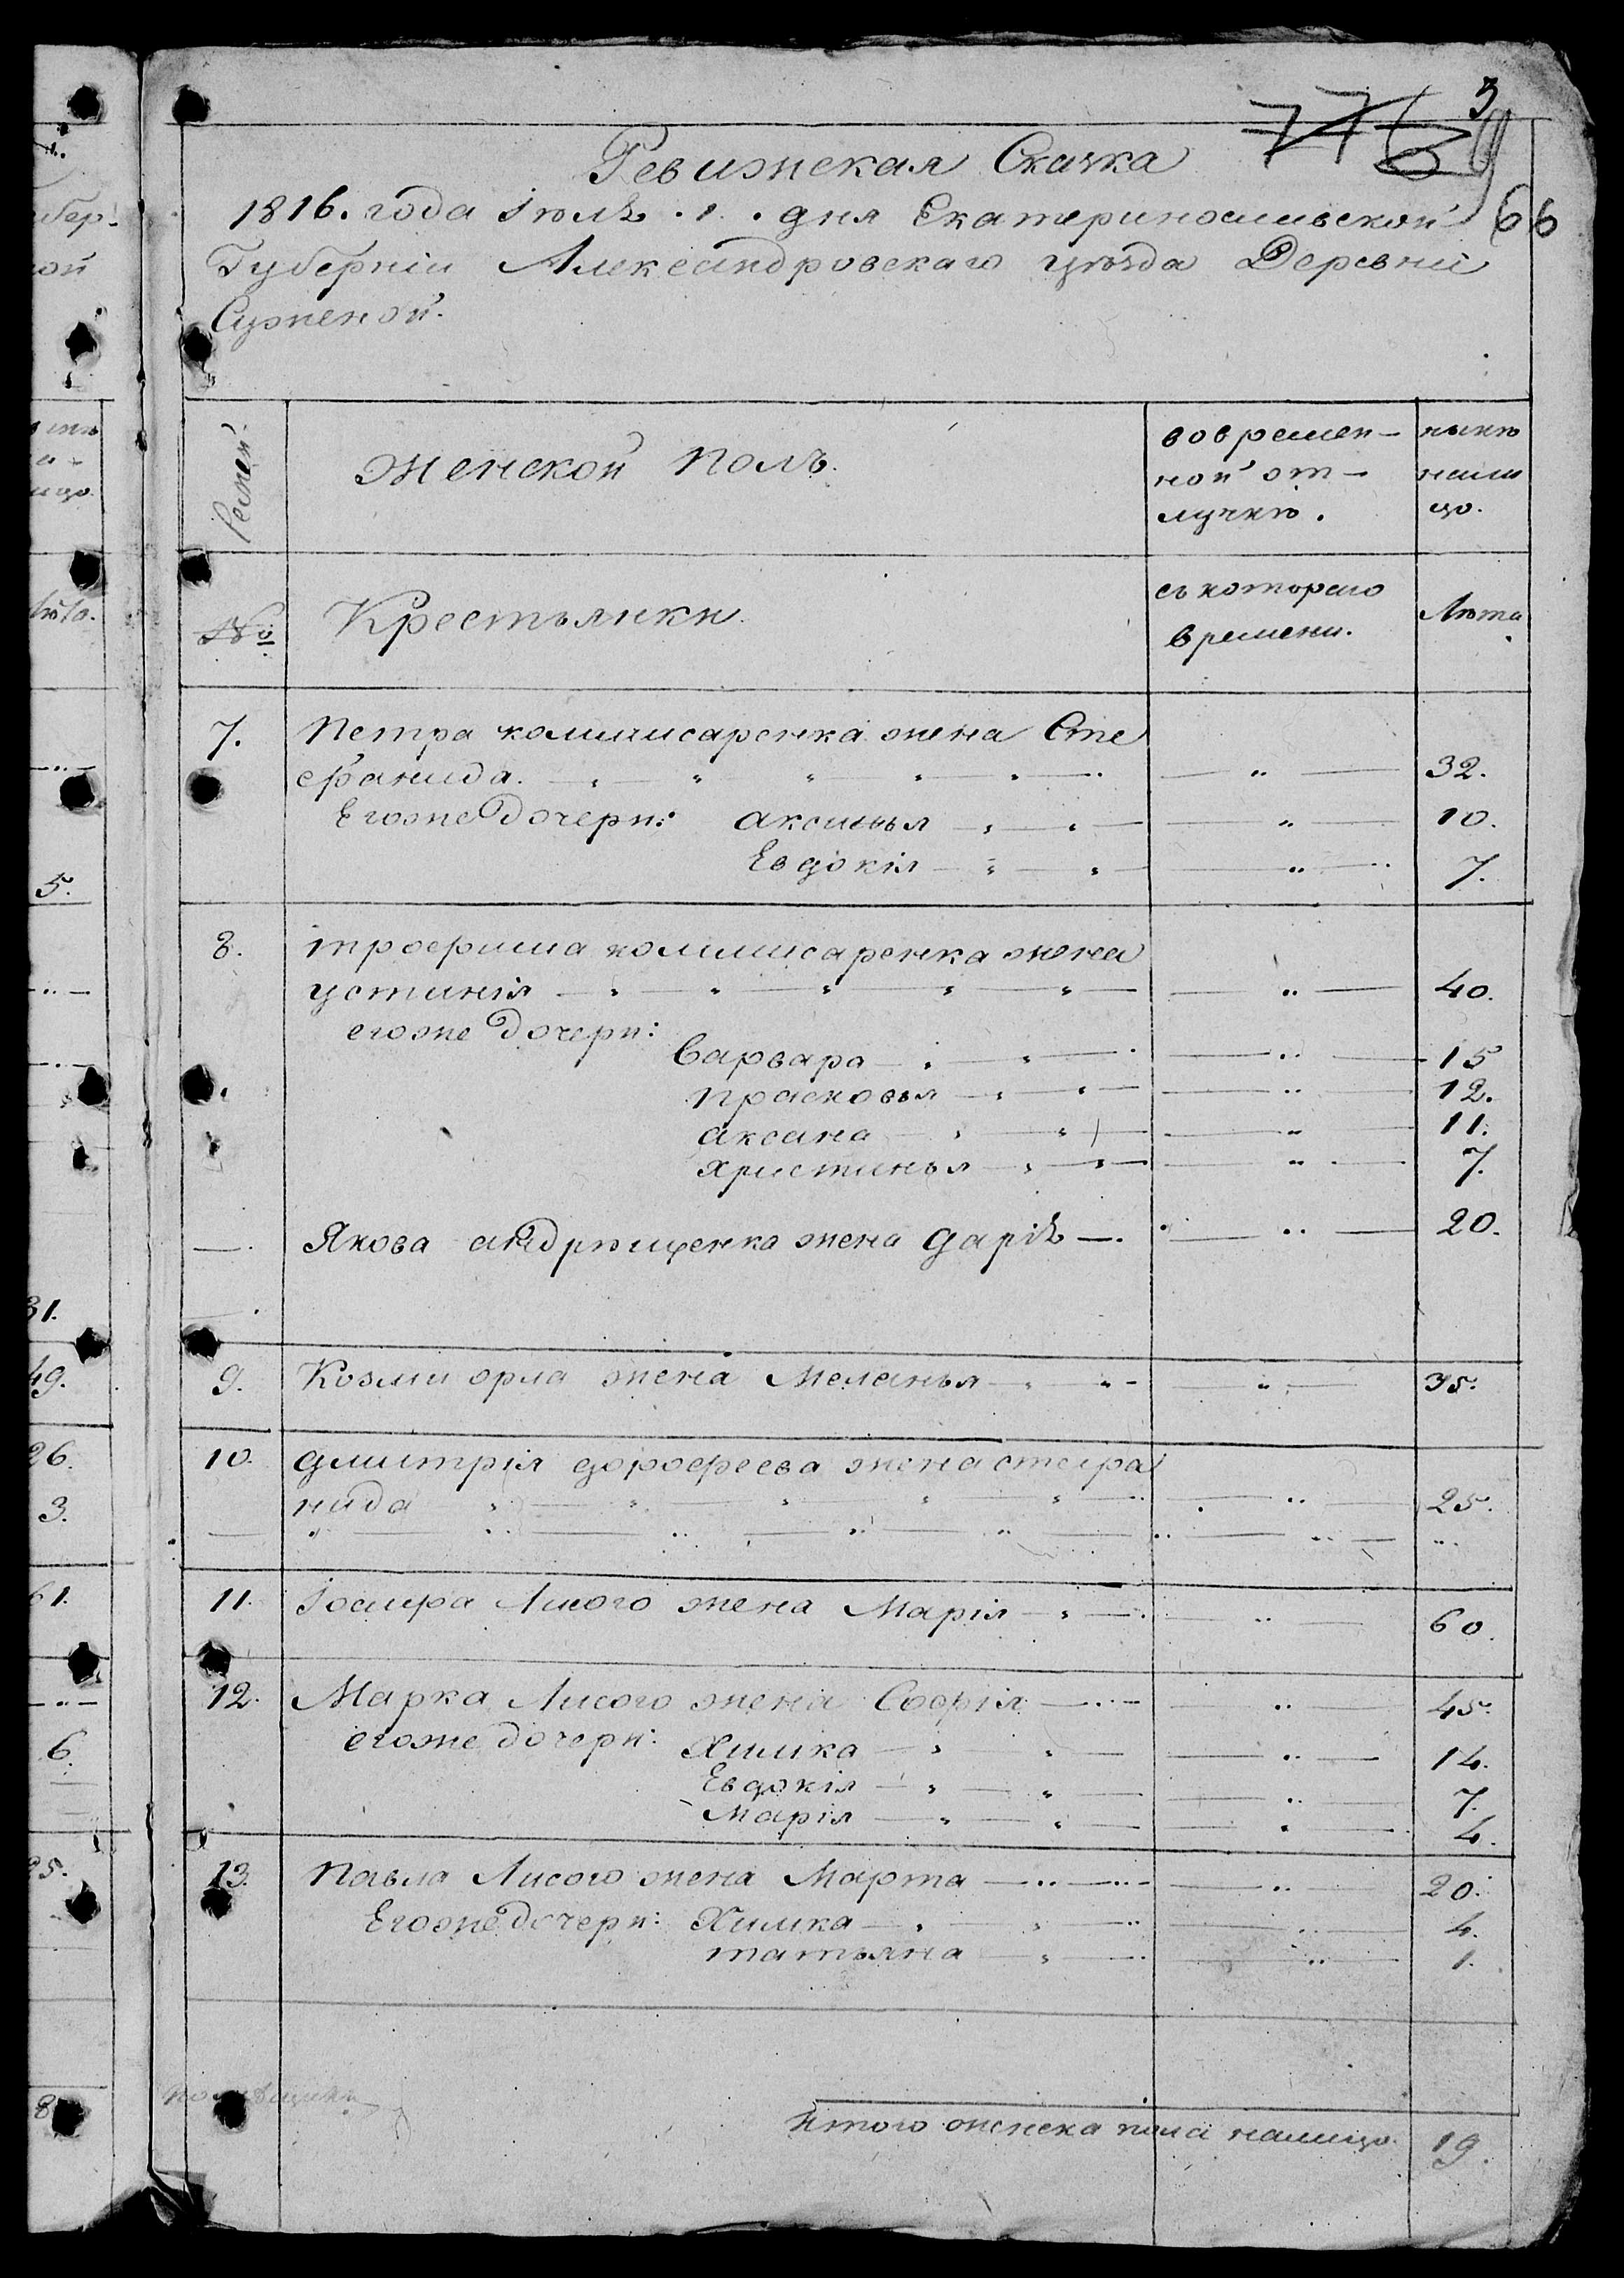 3
66
Ревижская Скаска
1816. года Іюля .1. дня Екатеринославской
Губерніи Александровскаго уѣзда Деревни
Семей
Женской полъ.
вовремен-
ной от-
лучкѣ.
нынѣ
нали
цо.
№
Крестьянки
съ котораго
времени.
Лѣта
7. Петра коммисаренка жена Сте
фанида. 32.
Егоже дочери: аксинья 10.
Евдокія 7.
8. трофима коммисаренка жена
устинія 40.
егоже дочери:
Варвара 15
Прасковья 12.
аксана 11.
христинья 7.
Якова андрющенка жена дарія 20.
9. Козми орла жена Меланья 35.
10. дмитрія дорофеева жена стефа
нида 25.
11. Іосифа Лисого жена Марія 60.
12. Марка Лисого жена Софія 45.
егоже дочери: Химка 14.
Евдокія 7.
Марія 4.
13. Павла Лисого жена Марта 20.
Егоже дочери: Химка 4.
татьяна 1.
Итого женска пола налицо. 19.